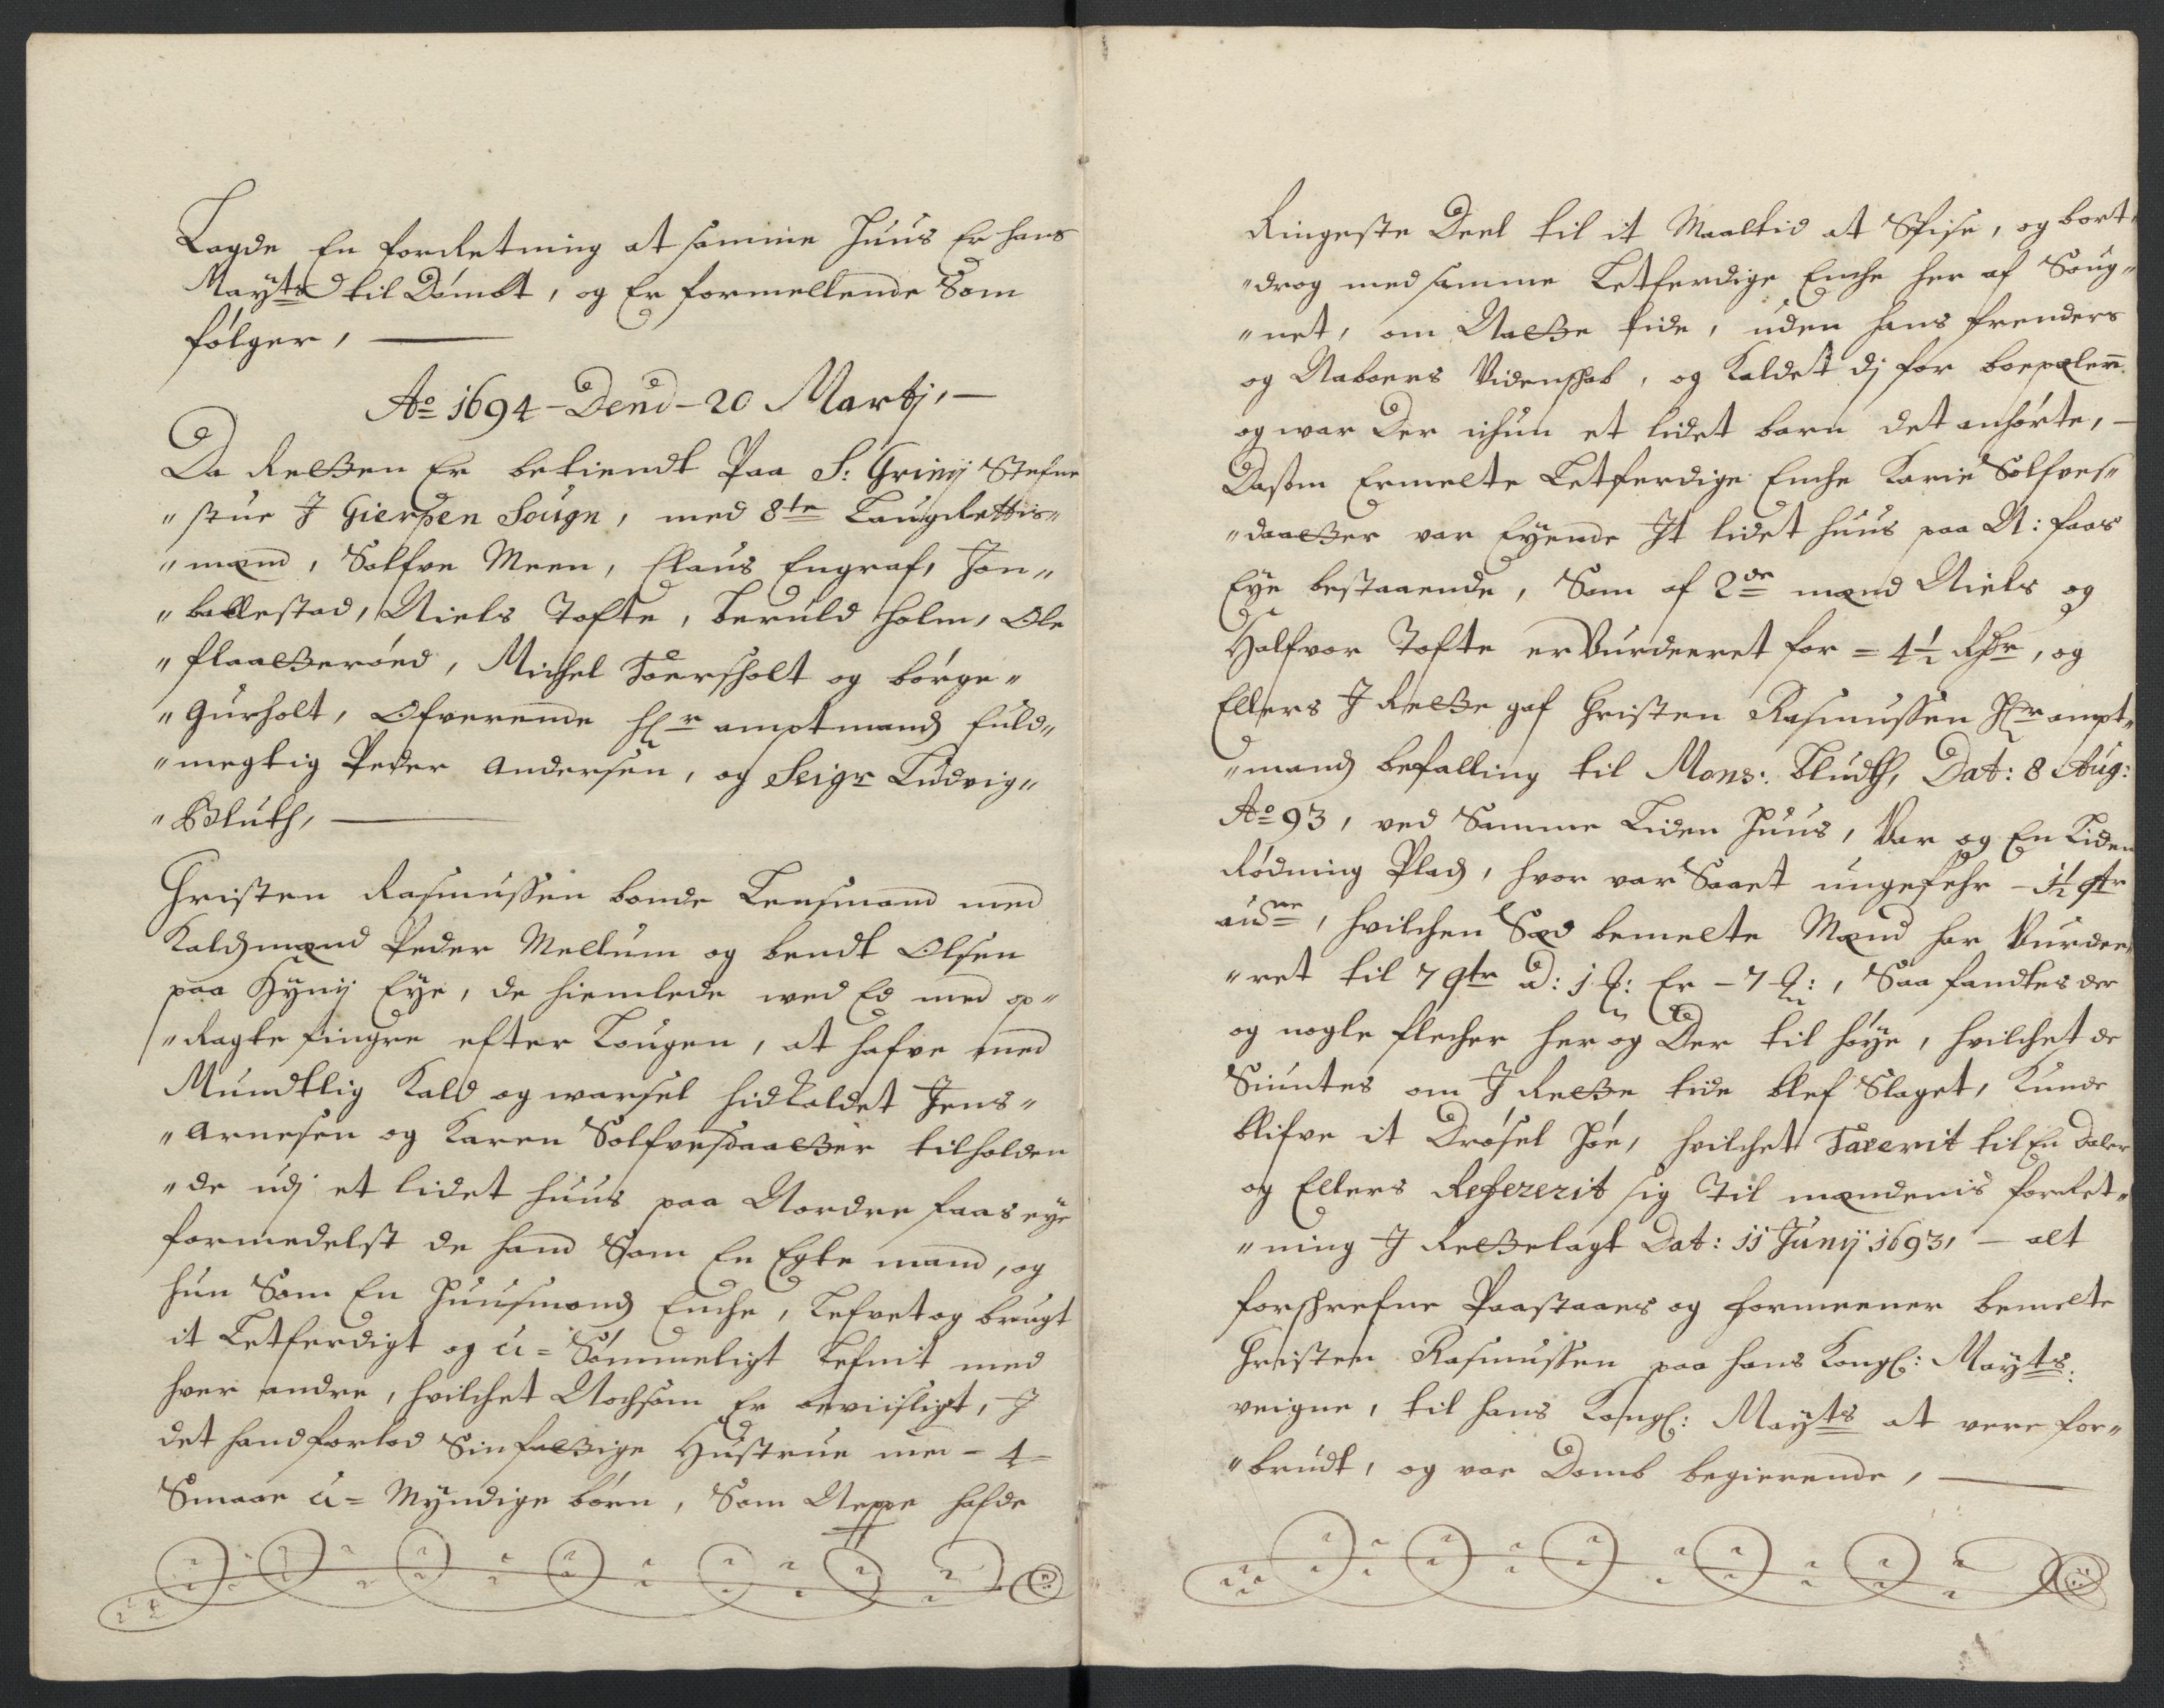 Lagde En forRetning at samme Huus Er hans
Mayts til Dømbt, og Er formellende Som
følger,
Ao 1694 - Dend - 20 Martj, -
Da Retten Er betiendt Paa S: Griny Stefne
" stue J Gierpen Sougn, med 8te LaugRettis"
" mænd, Solfve Meen, Claus Engraf, Jon"
" ballestad, Niels Tofte, Beruld Holm, Ole
" Flaatterøed, Michel Foersholt og Børge"
" Gurholt, Ofverende Hr amptmands fuld"
" megtig Peder Andersen, og Seigr Ludvig"
" Bluth,
Christen Rasmussen bonde Lensmand med
Kaldsmænd Peder Mellum og bendt Olsen
paa Hynij Eye, de hiemlede wed Ed med op"
" Ragte fingre efter Lougen, at hafve med
Mundtlig Kald og warsel hidkaldet Jens"
" Arnesen og Karen Solfvesdaatter tilholden
" de udj et lidet huus paa Nordre faas eye
formedelst de hand Som En Egte mand, og
hun Som En Huusmands Enche, Lefvet og brugt
it Letferdigt og u= Sømmeligt Lefnit med
hver andre, hvilchet Nochsom Er beviisligt, J
det hand forlod Sin fattige Hustrue med - 4 -
Smaae u= Myndige børn, Som Neppe hafde
Ringeste Deel til it Maaltid at Spise, og bort"
" drog med samme Letferdige Enche her af Soug"
" net, om Natte tide, uden hans frenders
og Naboers Videnskab, og Kaldet dj for boepælen
og war Der ichun et lidet barn det anhørte, -
Dasom Ermelte Letferdige Enche Karie Solfves"
" daatter var Eyende It lidet huus paa N: faas
Eye bestaaende, Som af 2de mænd Niels og
Halfvor Tofte er Vurderet for = 4½ Rdr, og
Ellers J Rette gaf Christen Rasmussen Hr ampt"
" mands befalling til Mons: Bludth, Dat: 8 Aug:
Ao 93, ved Samme Liden Huus, Var og En Liden
Rødning Plads, hvor var Saaet ungefehr - 1½ qtr
, hvilchen Sæd bemelte Mænd har Vurdee"
" ret til 7 qtr a: 1 : Er - 7 :, Saa fandtes der
og nogle flecher her og Der til høye, hvilchet de
Siuntes om J Rette tide blef Slaget, Kunde
blifve it Drøsel høe, hvilchet Taxerit til En daler
og Ellers Refererit sig Til mændenis forRet"
" ning J Rettelagt Dat: 11 Junij 1693, - alt
forschrefne Paastaaes og formeener bemelte
Christen Rasmussen paa hans Kongl: Mayts:
veigne, til hans Kongl: Mayts at vere for"
" brudt, og var Domb begierende,